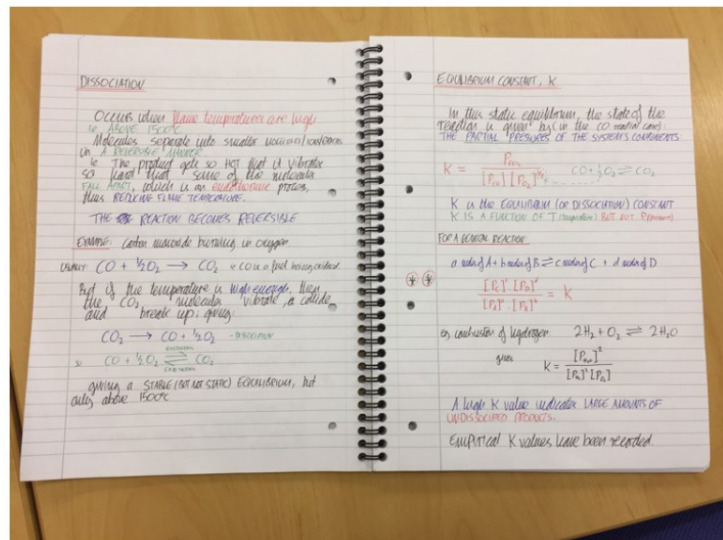 DISSOCIATION
Occurs when flame temperatures are high
ie ABOVE 1500°C
Molecules separate into smaller
in A REVERSIBLE MANNER
ie The product gets so HOT that it vibrates
so hard that some of the molecules
FALL APART, which is an endothermic process,
thus REDUCING FLAME TEMPERATURE.
THE REACTION BECOMES REVERSIBLE
EXAMPLE: Carbon monoxide burning in oxygen.
USUALLY CO + ½O₂ → CO₂ CO is a fuel being oxidised
But if the temperature is high enough, then
the CO₂ molecules vibrate, collide
and break up: giving:
CO₂ → CO + ½O₂ - DISSOCIATION
so CO + ½O₂ ⇌ CO₂
giving a STABLE (BUT NOT STATIC) EQUILIBRIUM, but
only above 1500°C
EQUILIBRIUM CONSTANT, K
In this static equilibrium, the state of the
reaction is given by (in the CO case):
THE PARTIAL PRESSURES OF THE SYSTEM'S COMPONENTS:
K = P_CO₂ / [P_CO]¹ [P_O₂]^½ CO + ½O₂ ⇌ CO₂
K is the EQUILIBRIUM (OR DISSOCIATION) CONSTANT
K IS A FUNCTION OF T (temperature) BUT NOT P (pressure)
FOR A GENERAL REACTION
a moles of A + b moles of B ⇌ c moles of C + d moles of D
** [P_C]^c [P_D]^d / [P_A]^a . [P_B]^b = K
eg combustion of hydrogen 2H₂ + O₂ ⇌ 2H₂O
gives K = [P_H₂O]² / [P_H₂]² [P_O₂]
A high K value indicates LARGE AMOUNTS OF
UNDISSOCIATED PRODUCTS.
EMPIRICAL K values have been recorded.